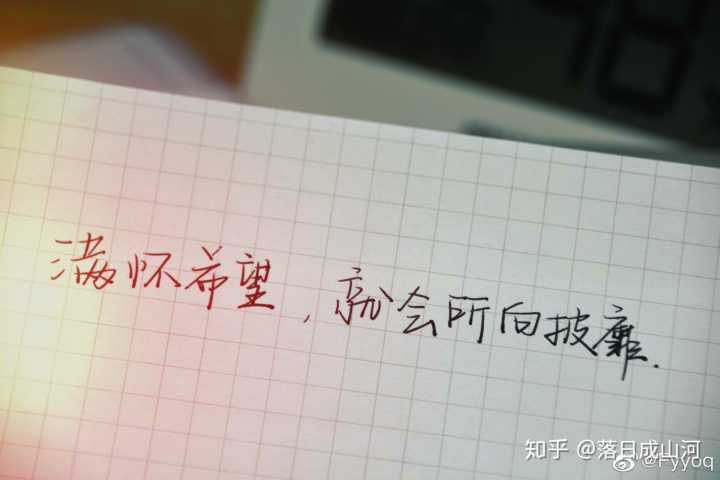 满怀希望，就会所向披靡.
知乎 @落日成山河
@Fyyoq